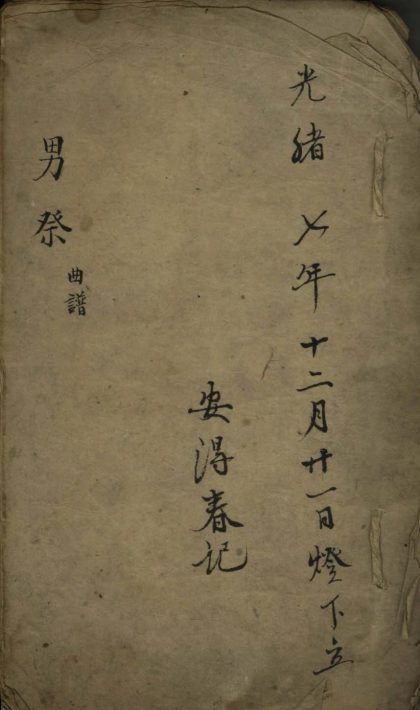 光緒七年十二月廿一日燈下立
安得春記
男祭曲譜